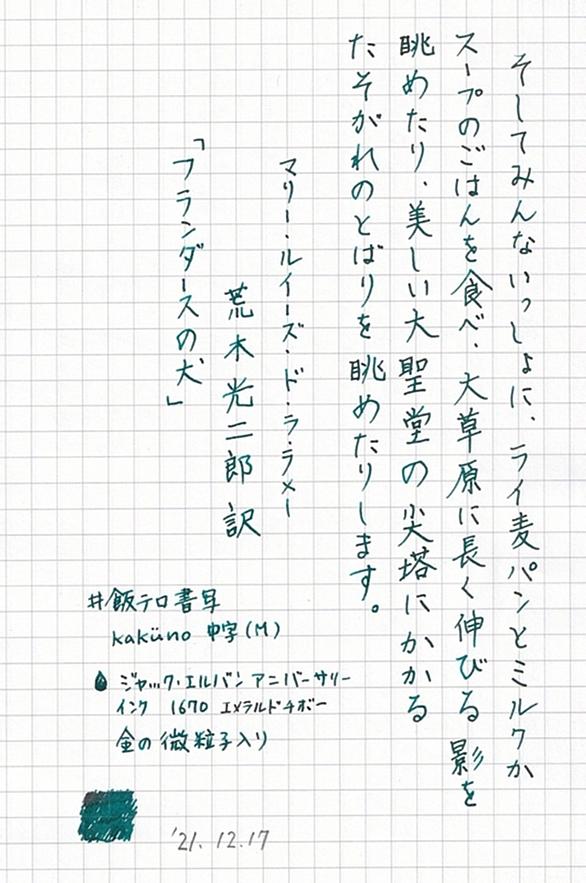 そしてみんないっしょに、ライ麦パンとミルクか
スープのごはんを食べ、大草原に長く伸びる影を
眺めたり、美しい大聖堂の尖塔にかかる
たそがれのとばりを眺めたりします。
マリー・ルイーズ・ド・ラ・ラメー
荒木光二郎 訳
「フランダースの犬」
#飯テロ書写
kaküno 中字(M)
ジャック・エルバン アニバーサリー
インク 1670 エメラルドチボー
金の微粒子入り
'21.12.17